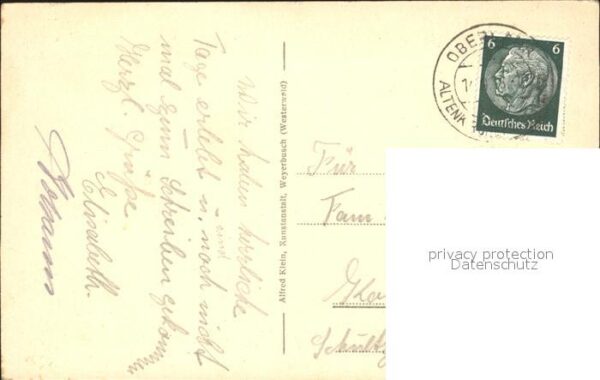 Wir haben herrliche
Tage erlebt u. noch nicht
mal zum Schreiben gekom̅en
sind
Herzl. Grüße
Elisabeth.
Johann
Alfred Klein, Kunstanstalt, Weyerbusch (Westerwald)
6 6
Deutsches Reich
ALTENK
Für
Fam
privacy protection
Datenschutz